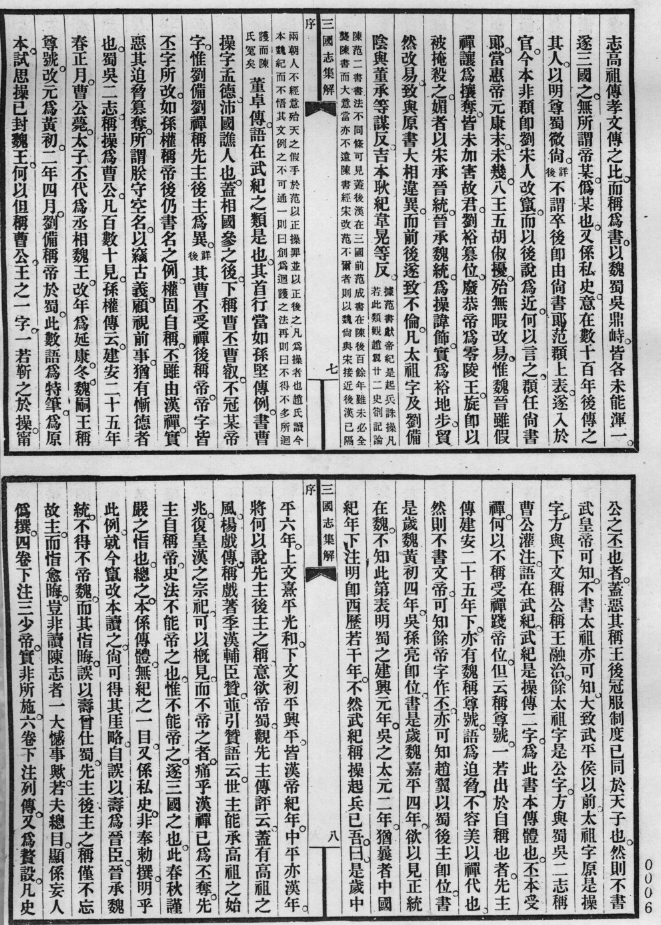 志高祖傳孝文傳之比而稱爲書以魏蜀吳鼎峙皆各未能渾一
遂三國之無所謂帝某爲某也又係私史意在數十百年後傳之
其人以明尊蜀微尙詳後不謂卒後卽由尙書郞范頵上表遂入於
官今本非頵卽劉宋人改竄而以後說爲近何以言之頵任尙書
郞當惠帝元康末未幾八王五胡俶擾殆無暇改易惟魏晉雖假
禪讓爲攘奪皆未加害故君劉裕篡位廢恭帝爲零陵王旋卽以
被掩殺之媚者以宋承晉統晉承魏統爲操諱飾實爲裕地步貿
然改易致與原書大相違異而前後遂致不倫凡太祖字及劉備
陰與董承等謀反吉本耿紀韋晃等反
據范書獻帝紀是起兵誅操凡
若此類觀趙翼廿二史劄記論
陳范二書書法不同條可見蓋後漢在三國前范成書在陳後百餘年雖未必全
襲陳書而大意當亦不遠陳書經宋改范不爾者則以魏尙與宋接近後漢已隔
三國志集解
序
七
兩朝人不經意給天之假手於范以正操罪並以正後之凡爲操者也趙氏讀今
本魏紀而不悟其文例之不可通一則曰創爲迴護之法再則曰不得不多所迴
護而陳
氏冤矣
董卓傳語在武紀之類是也其首行當如孫堅傳例書曹
操字孟德沛國譙人也蓋相國參之後下稱曹丕曹叡不冠某帝
字惟劉備劉禪稱先主後主爲異詳後其曹丕受禪後稱帝帝字皆
丕字所改如孫權稱帝後仍書名之例權固自稱丕雖由漢禪實
惡其迫脅篡奪所謂朕守空名以竊古義顧視前事猶有慚德者
也蜀吳二志稱操爲曹公凡百數十見孫權傳云建安二十五年
春正月曹公薨太子丕代爲丞相魏王改年爲延康冬魏嗣王稱
尊號改元爲黃初二年四月劉備稱帝於蜀此數語爲特筆爲原
本試思操已封魏王何以但稱曹公王之一字一若靳之於操甯
公之丕也者蓋惡其稱王後冠服制度已同於天子也然則不書
武皇帝可知不書太祖亦可知大致武平侯以前太祖字原是操
字方與下文稱公稱王融洽餘太祖字是公字方與蜀吳二志稱
曹公灌注語在武紀武紀是操傳二字爲此書本傳體也丕本受
禪何以不稱受禪踐帝位但云稱尊號一若出於自稱也者先主
傳建安二十五年下亦有魏稱尊號語爲迫脅不容美以禪代也
然則不書文帝可知餘帝字作丕亦可知趙翼以蜀後主卽位書
是歲魏黃初四年吳孫亮卽位書是歲魏嘉平四年欲以見正統
在魏不知此第表明蜀之建興元年吳之太元二年猶曩者中國
紀年下注明卽西歷若干年不然武紀稱操起兵已吾曰是歲中
三國志集解
序
八
平六年上文嘉平光和下文初平興平皆漢帝紀年中平亦漢年
將何以說先主後主之稱意欲帝蜀觀先主傳評云蓋有高祖之
風楊戲傳稱戲著季漢輔臣贊並引贊語云世主能承高祖之始
兆復皇漢之宗祀可以槪見而不帝之者痛乎漢禪已爲丕奪先
主自稱帝史法不能帝之也惟不能帝之遂三國之也此春秋謹
嚴之恉也總之本係傳體無紀之一目又係私史非奉勅撰明乎
此例就今竄改本讀之尙可得其厓略自誤以壽爲晉臣晉承魏
統不得不帝魏而其恉晦誤以壽曾仕蜀先主後主之稱僅不忘
故主而恉愈晦豈非讀陳志者一大憾事歟若夫總目顯係妄人
僞撰四卷下注三少帝實非所施六卷下注列傳又爲贅設凡史
0006